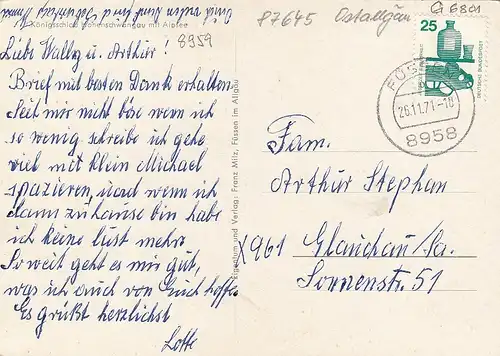 Königsschloß Hohenschwangau mit Alpsee
8959
Liebe Wally u. Arthur!
Brief mit besten Dank erhalten
Seit mir nicht böse wenn ich
so wenig schreibe ich gehe
viel mit klein Michael
spazieren, und wenn ich
dann zu Hause bin habe
ich keine lust mehr.
So weit geht es mir gut,
was ich auch von Euch hoffe.
Es grüßt herzlichst
Lotte
Eigentum und Verlag: Franz Milz, Füssen im Allgäu
87645 Ostallgäu
G 6801
25
DEUTSCHE BUNDESPOST
FÜSSEN
26.11.71-18
8958
Fam.
Arthur Stephan
X961 Glauchau/Sa.
Sonnenstr. 51